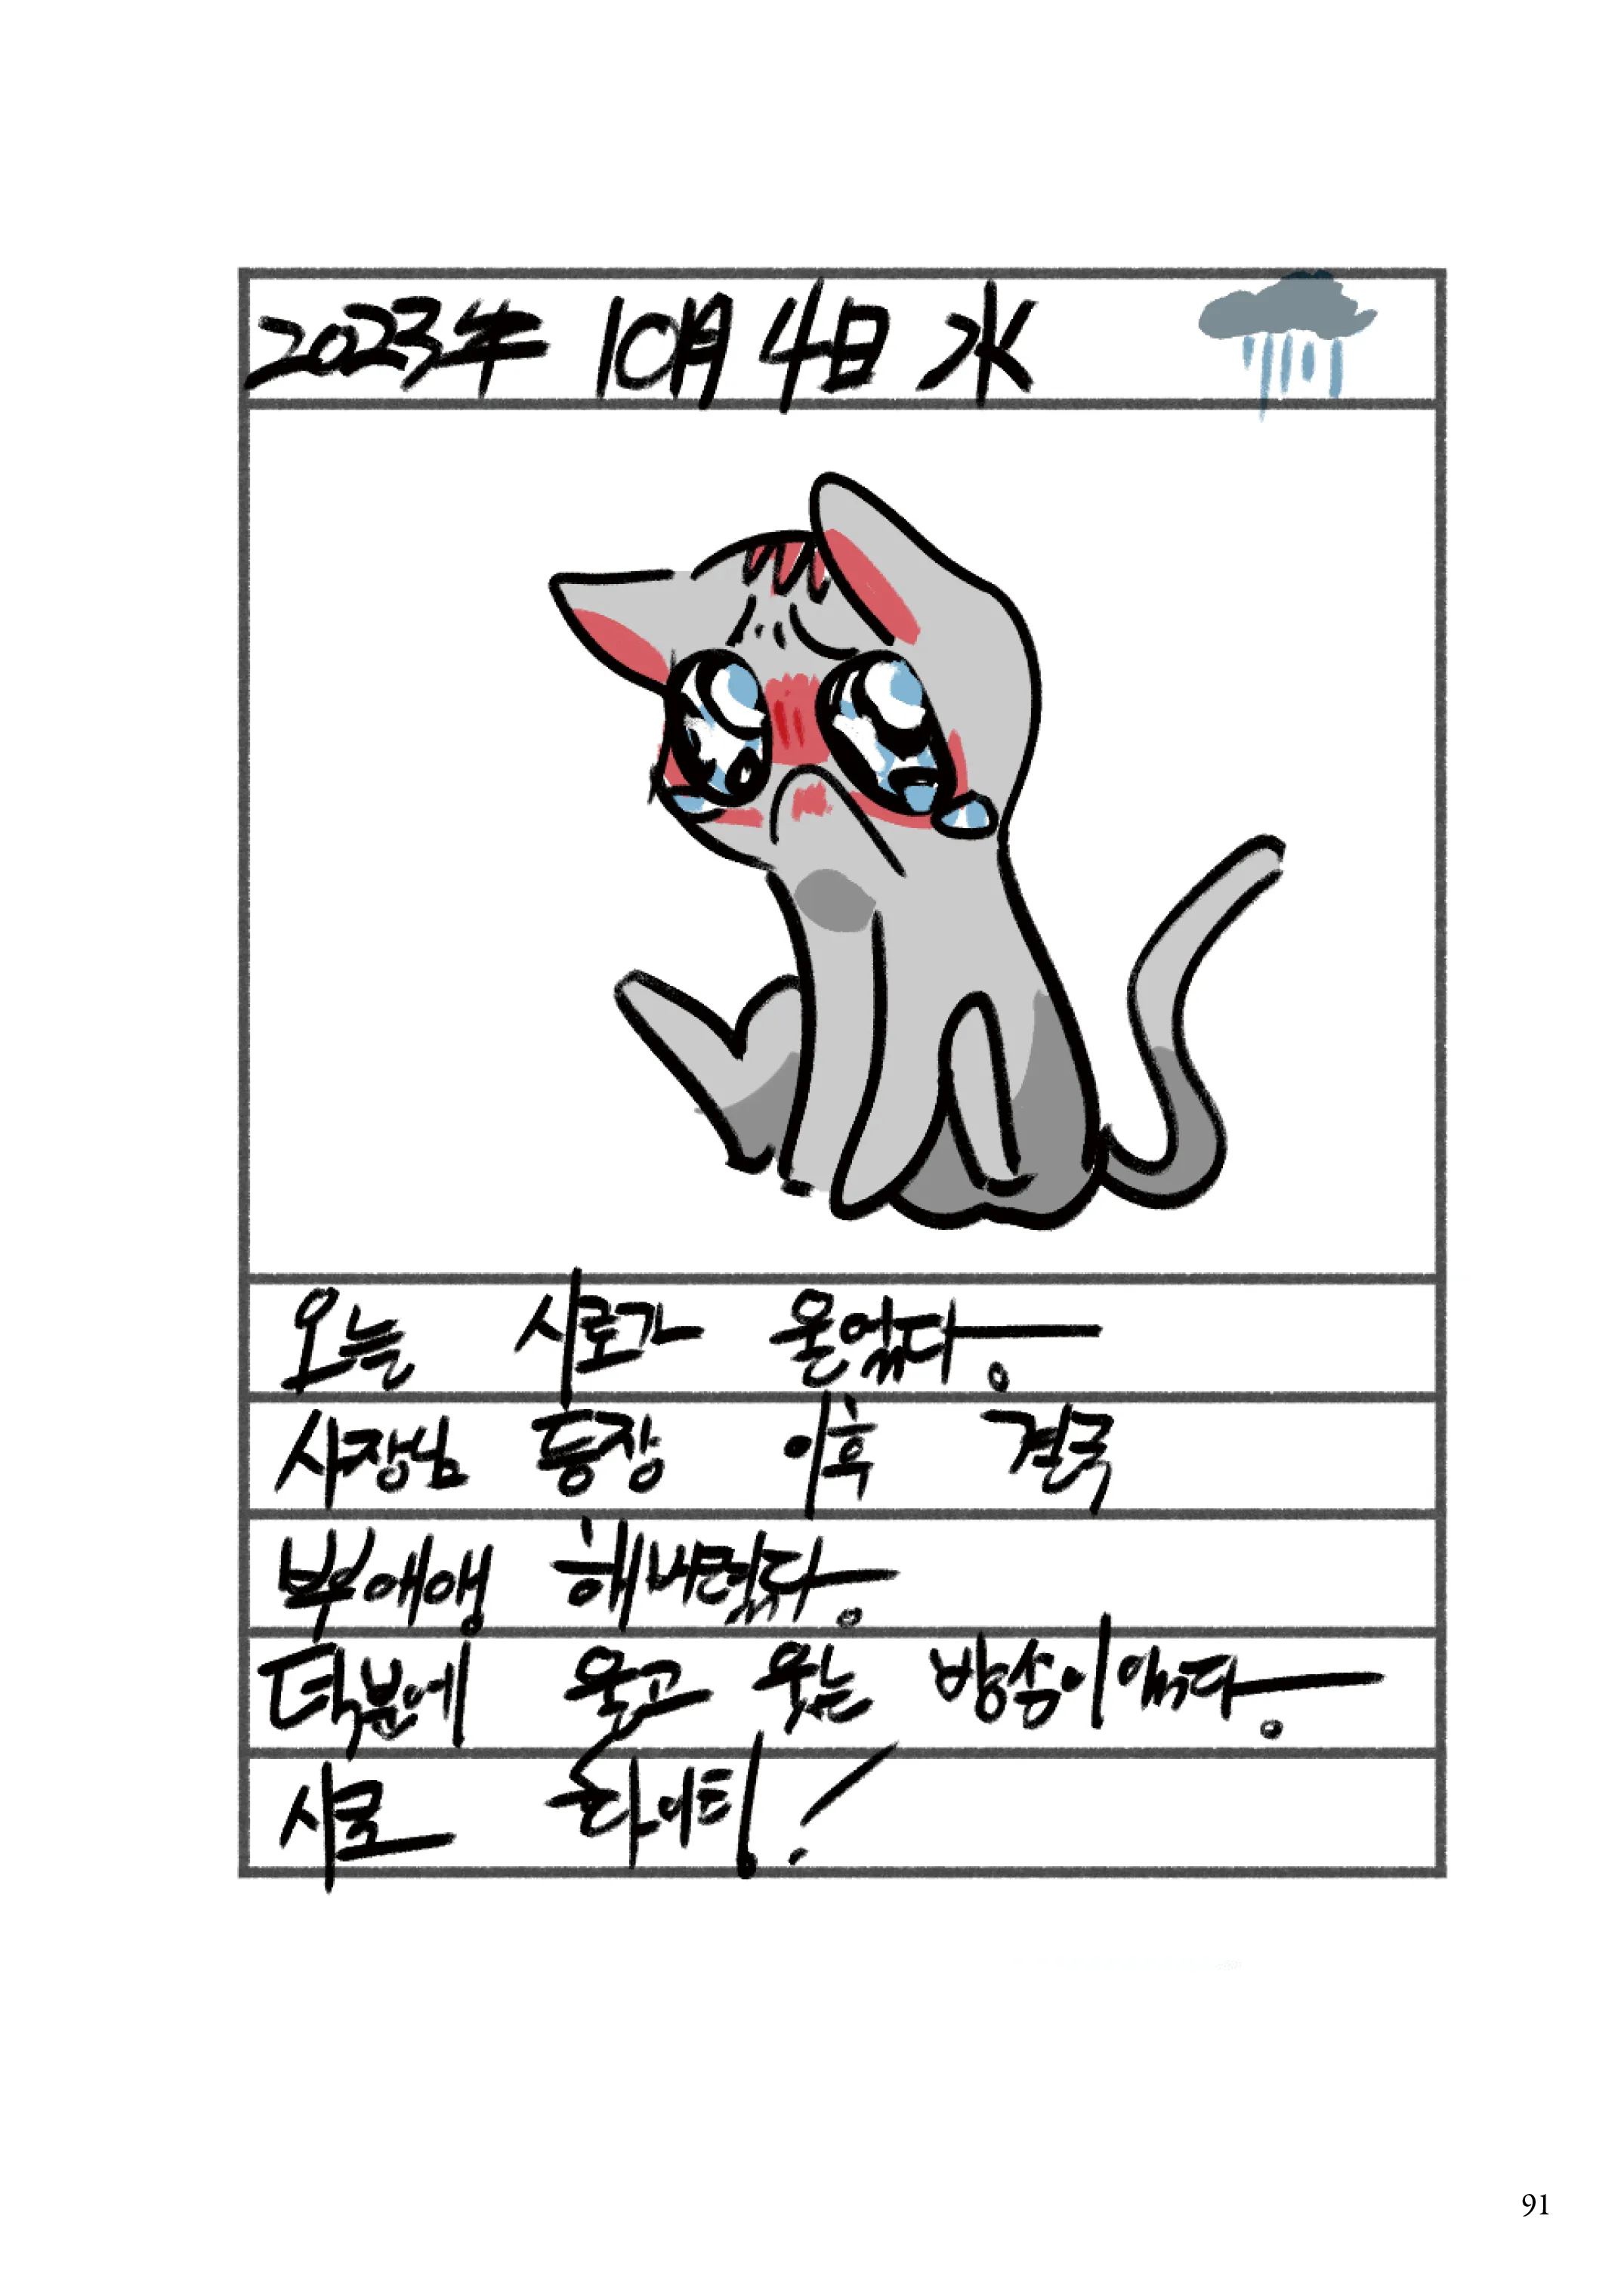 2023年 10月 4日 水
오늘 시로가 울었다.
사장님 등장 이후 결국
뿌애앵 해버렸다.
덕분에 울고 웃는 방송이었다.
시로 화이팅!
91